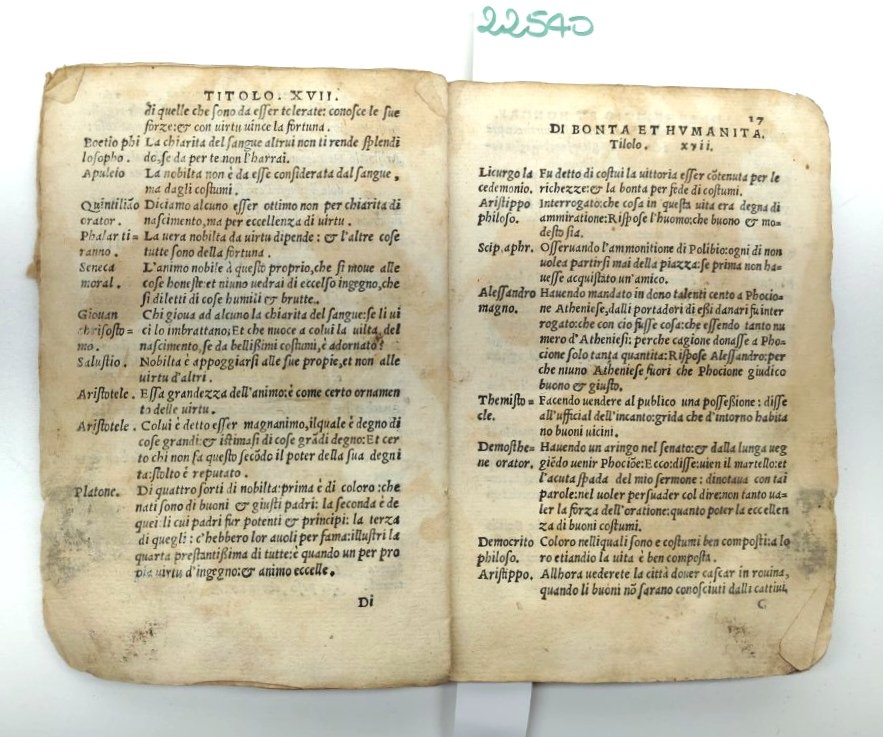 22540
TITOLO. XVII.
di quelle che sono da esser tolerate: conosce le sue
forze:& con uirtu uince la fortuna.
Boetio phi La chiarita del sangue altrui non ti rende splendi
losopho. do, se da per te non l'harrai.
Apuleio La nobilta non è da esse considerata dal sangue,
ma dagli costumi.
Quintiliāo Diciamo alcuno esser ottimo non per chiarita di
orator. nascimento, ma per eccellenza di uirtu.
Phalar ti= La uera nobilta da uirtu dipende: & l'altre cose
ranno. tutte sono della fortuna.
Seneca L'animo nobile à questo proprio, che si moue alle
moral. cose honeste: et niuno uedrai di eccelso ingegno, che
si diletti di cose humili & brutte.
Giouan Chi gioua ad alcuno la chiarita del sangue: se li ui
chrisosto= ci lo imbrattano; Et che nuoce a colui la uilta, del
mo. nascimento, se da bellißimi costumi, è adornato?
Salustio. Nobilta è appoggiarsi alle sue propie, et non alle
uirtu d'altri.
Aristotele. Essa grandezza dell'animo: è come certo ornamen
to delle uirtu.
Aristotele. Colui è detto esser magnanimo, ilquale è degno di
cose grandi: & istimasi di cose grādi degno: Et cer
to chi non fa questo secōdo il poter della sua degni
ta: stolto è reputato.
Platone. Di quattro sorti di nobilta: prima è di coloro: che
nati sono di buoni & giusti padri: la seconda è de
quei: li cui padri fur potenti & principi: la terza
di quegli: c'hebbero lor auoli per fama: illustri la
quarta prestantißima di tutte: è quando un per pro
pia uirtu d'ingegno: & animo eccelle.
Di
17
DI BONTA ET HVMANITA.
Titolo. xvii.
Licurgo la Fu detto di costui la uittoria esser cōtenuta per le
cedemonio. richezze: & la bonta per fede di costumi.
Aristippo Interrogato: che cosa in questa uita era degna di
philoso. ammiratione: Rispose l'huomo: che buono & mo=
desto sia.
Scip. aphr. Osseruando l'ammonitione di Polibio: ogni di non
uolea partirsi mai della piazza: se prima non ha=
uesse acquistato un'amico.
Alessandro Hauendo mandato in dono talenti cento a Phocio=
magno. ne Atheniese, dalli portadori di eßi danari fu inter
rogato: che con cio fusse cosa: che essendo tanto nu
mero d'Atheniesi: perche cagione donasse a Pho=
cione solo tanta quantita: Rispose Alessandro: per
che niuno Atheniese fuori che Phocione giudico
buono & giusto.
Themisto= Facendo uendere al publico una posseßione: disse
cle. all'ufficial dell'incanto: grida che d'intorno habita
no buoni uicini.
Demosthe= Hauendo un aringo nel senato: & dalla lunga ueg
ne orator. giēdo uenir Phociōe: Ecco: disse: uien il martello: et
l'acuta spada del mio sermone: dinotaua con tai
parole: nel uoler persuader col dire: non tanto ua=
ler la forza dell'oratione: quanto poter la eccellen
za di buoni costumi.
Democrito Coloro nelliquali sono e costumi ben composti: a lo
philoso. ro etiandio la uita è ben composta.
Aristippo. Allhora uederete la città douer cascar in rouina,
quando li buoni nō sarano conosciuti dalli cattiui.
C